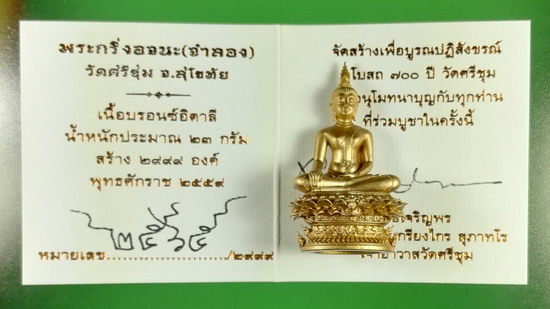 พระกริ่งอจนะ(จำลอง)
วัดศรีชุม จ.สุโขทัย
เนื้อบรอนซ์อิตาลี
น้ำหนักประมาณ ๒๓ กรัม
สร้าง ๒๙๙๙ องค์
พุทธศักราช ๒๕๕๙
หมายเลข............................/๒๙๙๙
จัดสร้างเพื่อบูรณปฏิสังขรณ์
โบสถ ๗๐๐ ปี วัดศรีชุม
นุโมทนาบุญกับทุกท่าน
ที่ร่วมบูชาในครั้งนี้
เจริญพร
เกรียงไกร สุภาทโร
อาวาสวัดศรีชุม